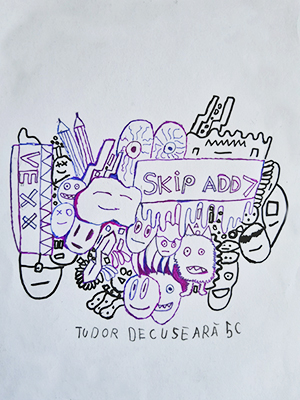 VEXX
SKIP ADD >
TUDOR DECUSEARĂ 5C